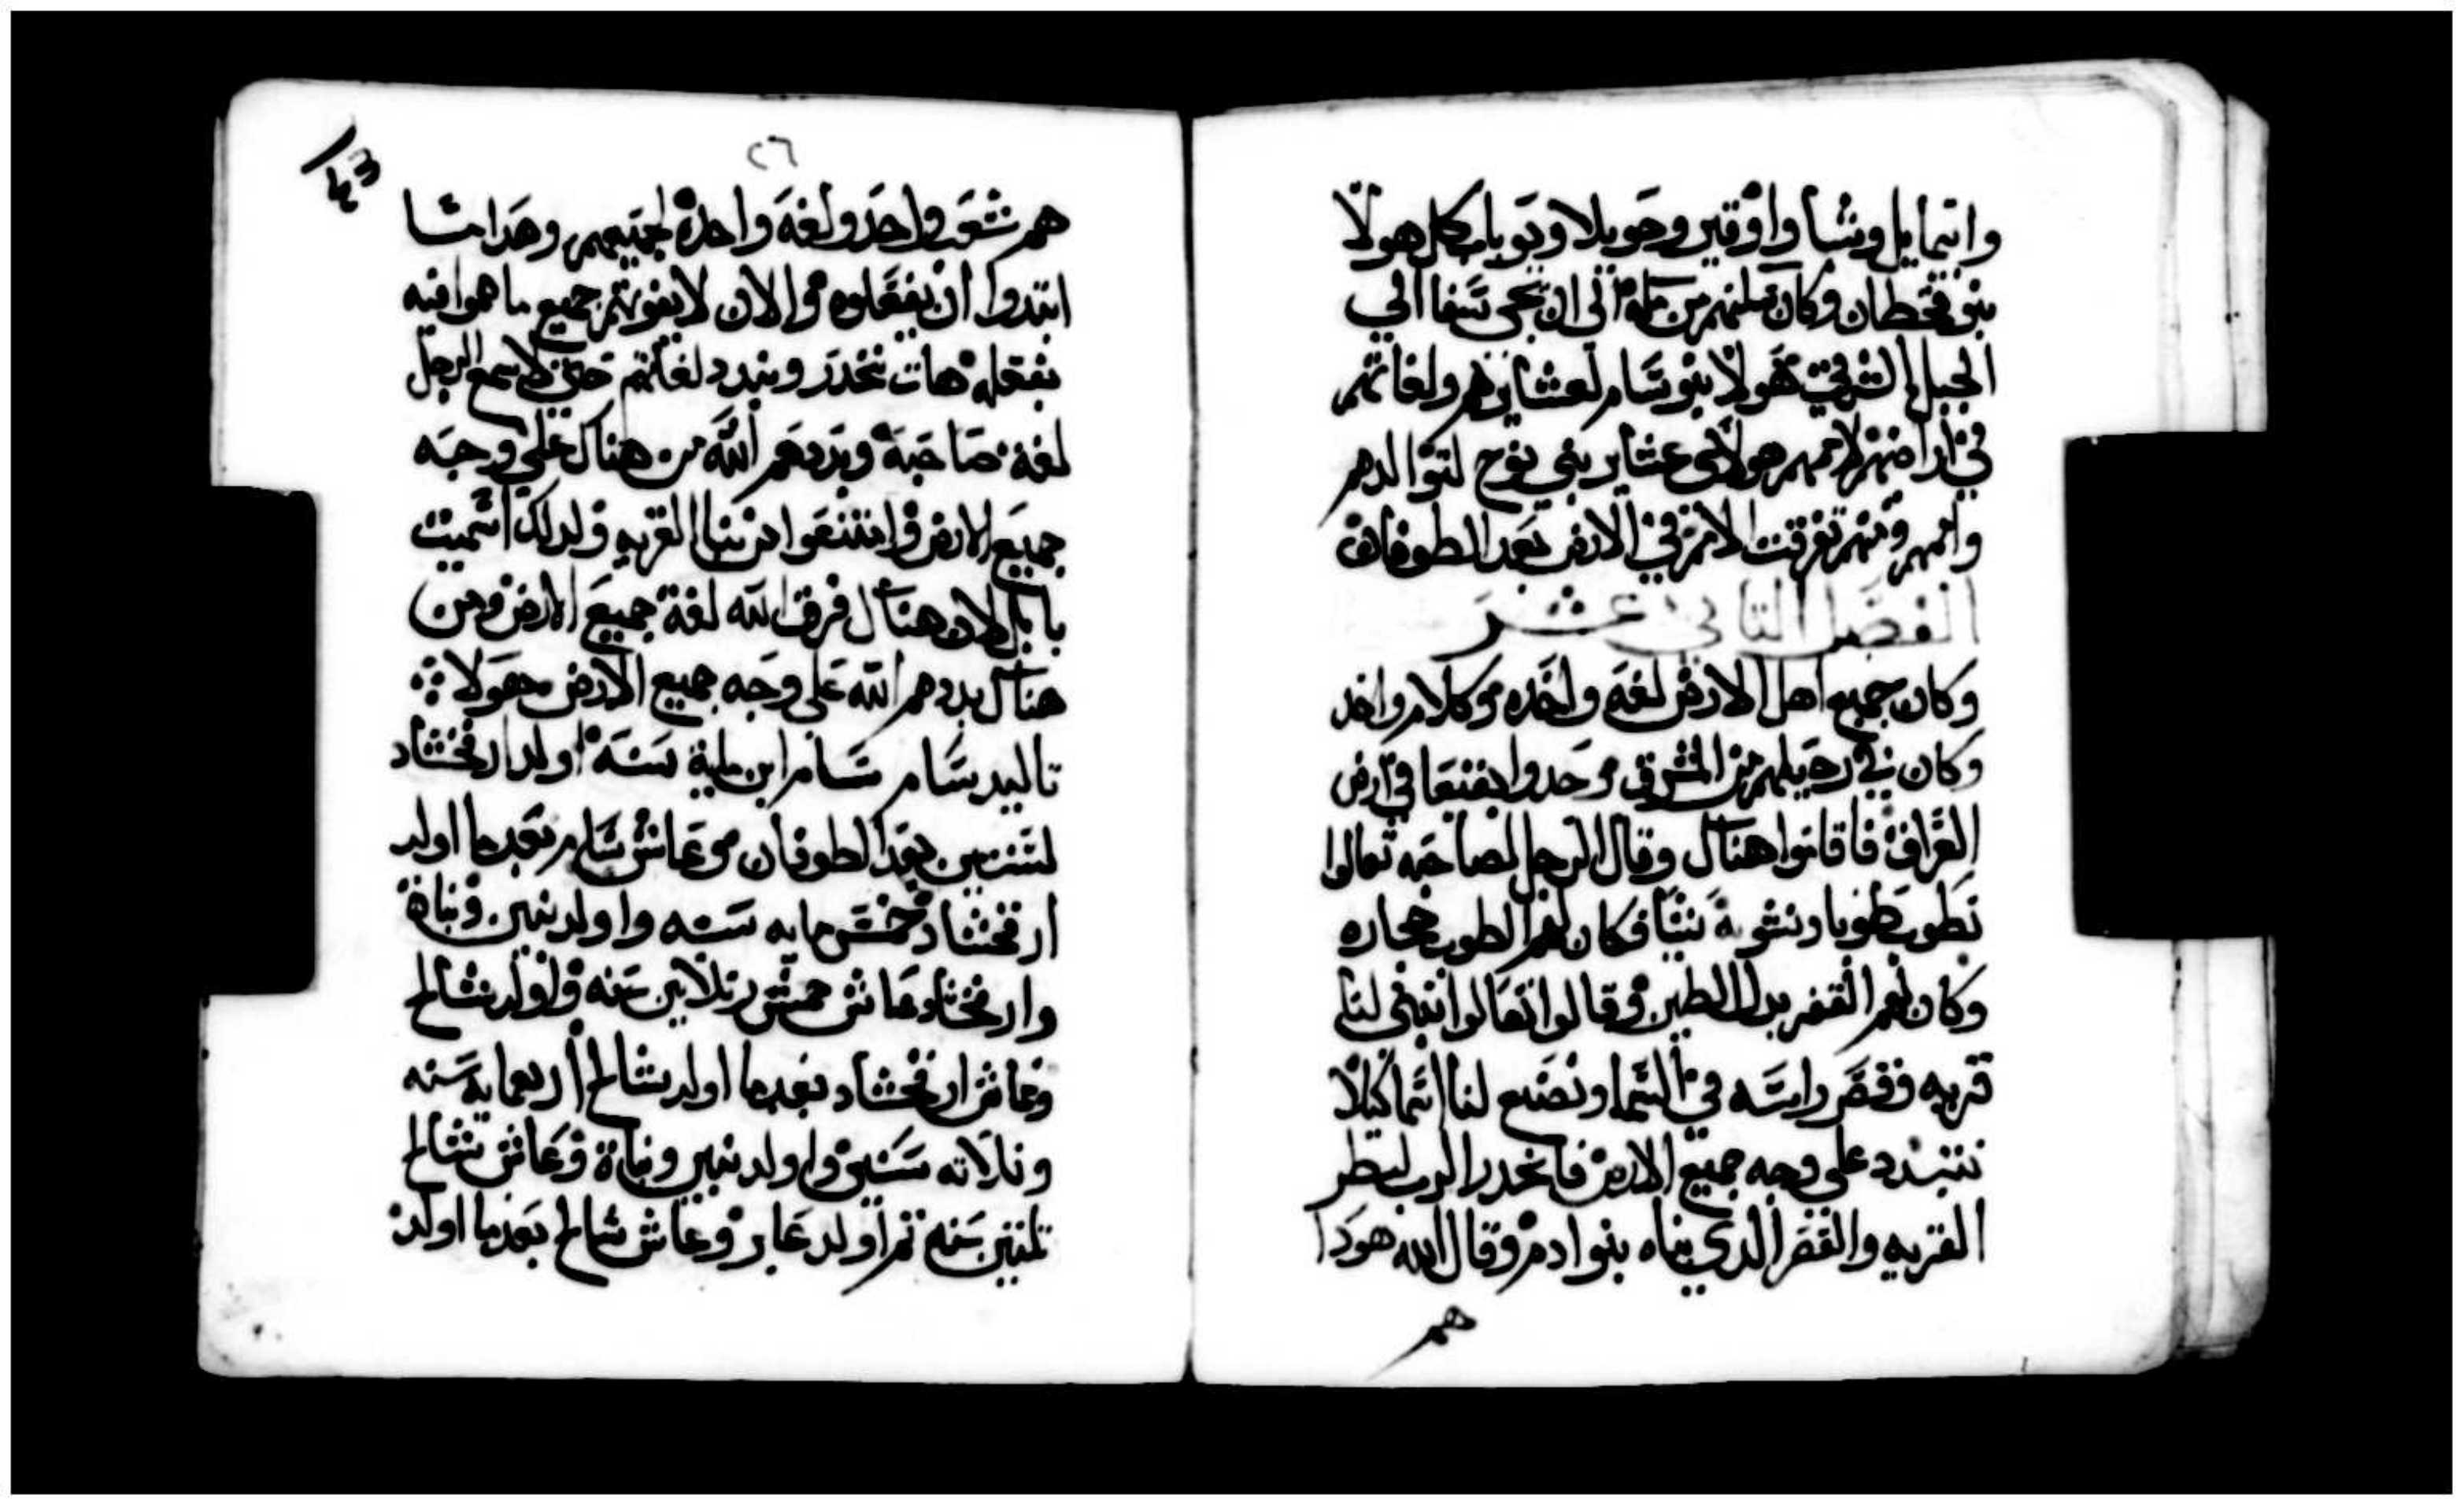 وانتمايل وشبا واوقير وحويلا ويوباب كل هولا
بنو قحطان وكان سكنهم من ماه الي ان تجي سفا الي
الجبل الشرقي هولا بنو سام لعشايرهم ولغاتهم
في اراضيهم لاممهم هولاي عشاير بني نوح لتوالدهم
واممهم ومنهم تفرقت الامم في الارض بعد الطوفان
الفصل التاني عشر
وكان جميع اهل الارض لغه واحده وكلام واحد
وكان في رحيلهم من المشرق وجدوا بقعا في ارض
العراق فاقاموا هناك وقال الرجل لصاحبه تعالوا
نطوب طوبا ونشويه نيا فكان لهم الطوب حجاره
وكان لهم القفر بدل الطين وقالوا تعالوا نبني لنا
قريه وقصر راسه في السما ونصنع لنا اسما كيلا
نتبدد علي وجه جميع الارض فانحدر الرب لينظر
القريه والقصر الدي بناه بنو ادم وقال الله هودا
هم
٢٦
هم شعب واحد ولغه واحدة لجميعهم وهدا ما
ابتدوا ان يفعلوه والان لا يفوتهم جميع ما هموا فيه
بفعله هات ننحدر ونبدد لغاتهم حتي لا يسمع الرجل
لغة صاحبه وبددهم الله من هناك علي وجه
جميع الارض وامتنعوا من بنا القريه ولدلك اسميت
بابل لان هناك فرق الله لغة جميع الارض ومن
هناك بددهم الله علي وجه جميع الارض وهولا
تاليد سام سام ابن ماية سنه اولد ارفخشاد
لسنتين بعد الطوفان وعاش سام بعد ما اولد
ارفخشاد خمس مايه سنه واولد بنين وبناة
وارفخشاد عاش خمس وتلاتين سنه واولد شالح
وعاش ارفخشاد بعد ما اولد شالح اربعمايه سنه
وتلاته سنين واولد بنين وبناة وعاش شالح
تلتين سنه تم اولد عابر وعاش شالح بعد ما اولد